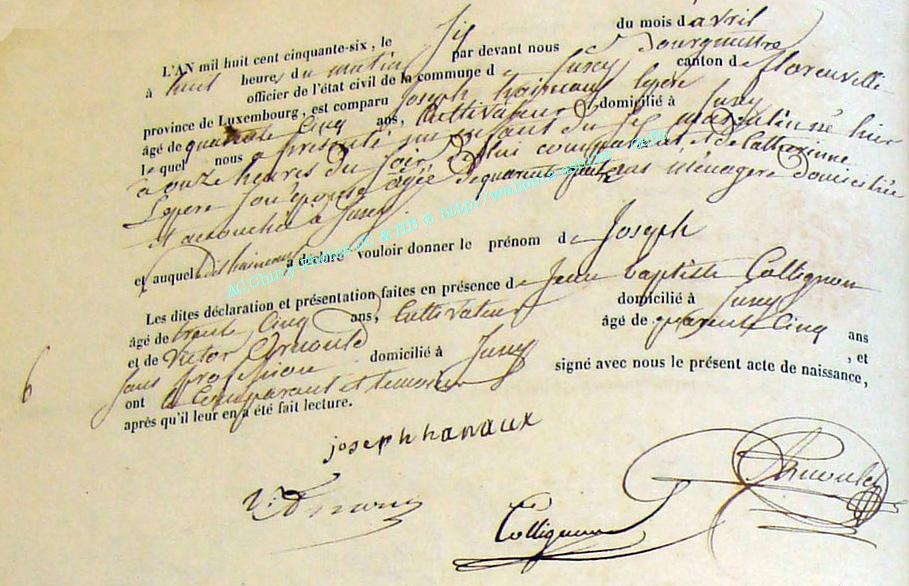 L'AN mil huit cent cinquante-six, le six du mois d avril
à huit heures du matin par devant nous Bourgmestre
officier de l'état civil de la commune d e Jusey canton d e florenville
province de Luxembourg, est comparu Joseph hainaux Lepere
âgé de quarante Cinq ans, Cultivateur domicilié à Jusey
lequel nous a présenté un enfant du masculin né hier
à onze heures du soir, de lui comparant, et de Catherinne
Lepere son épouse âgée de quarante ans ménagère domiciliée
et accouchée à Jusey
et auquel dit hainaux a déclaré vouloir donner le prénom d e Joseph
Les dites déclaration et présentation faites en présence d e Jean Baptiste Collignon
âgé de trente Cinq ans, Cultivateur domicilié à Jusey
et de Victor Arnould âgé de quarante Cinq ans
sans profession domicilié à Jusey , et
ont le Comparant et temoins signé avec nous le présent acte de naissance,
après qu'il leur en a été fait lecture.
6
joseph hanaux
Collignon
Arnould
AG Chiny